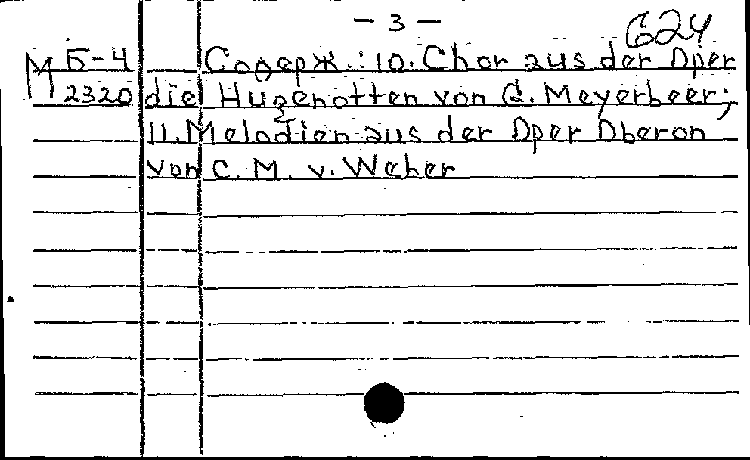 - 3 -
624
М Б-4 Содерж.: 10. Chor aus der Oper
2320 die Hugenotten von G. Meyerbeer;
11. Melodien aus der Oper Oberon
von C. M. v. Weber